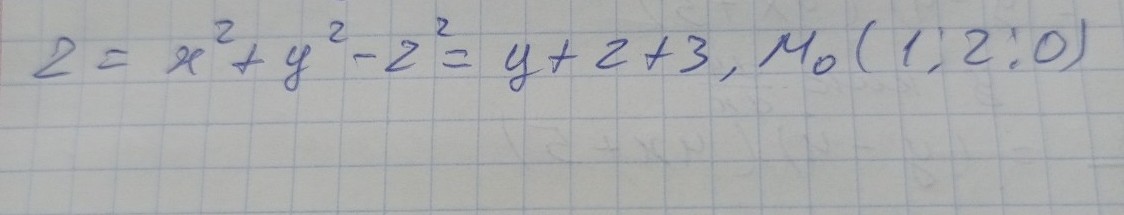 z = x² + y² - z² = y + z + 3, M₀ (1; 2; 0)